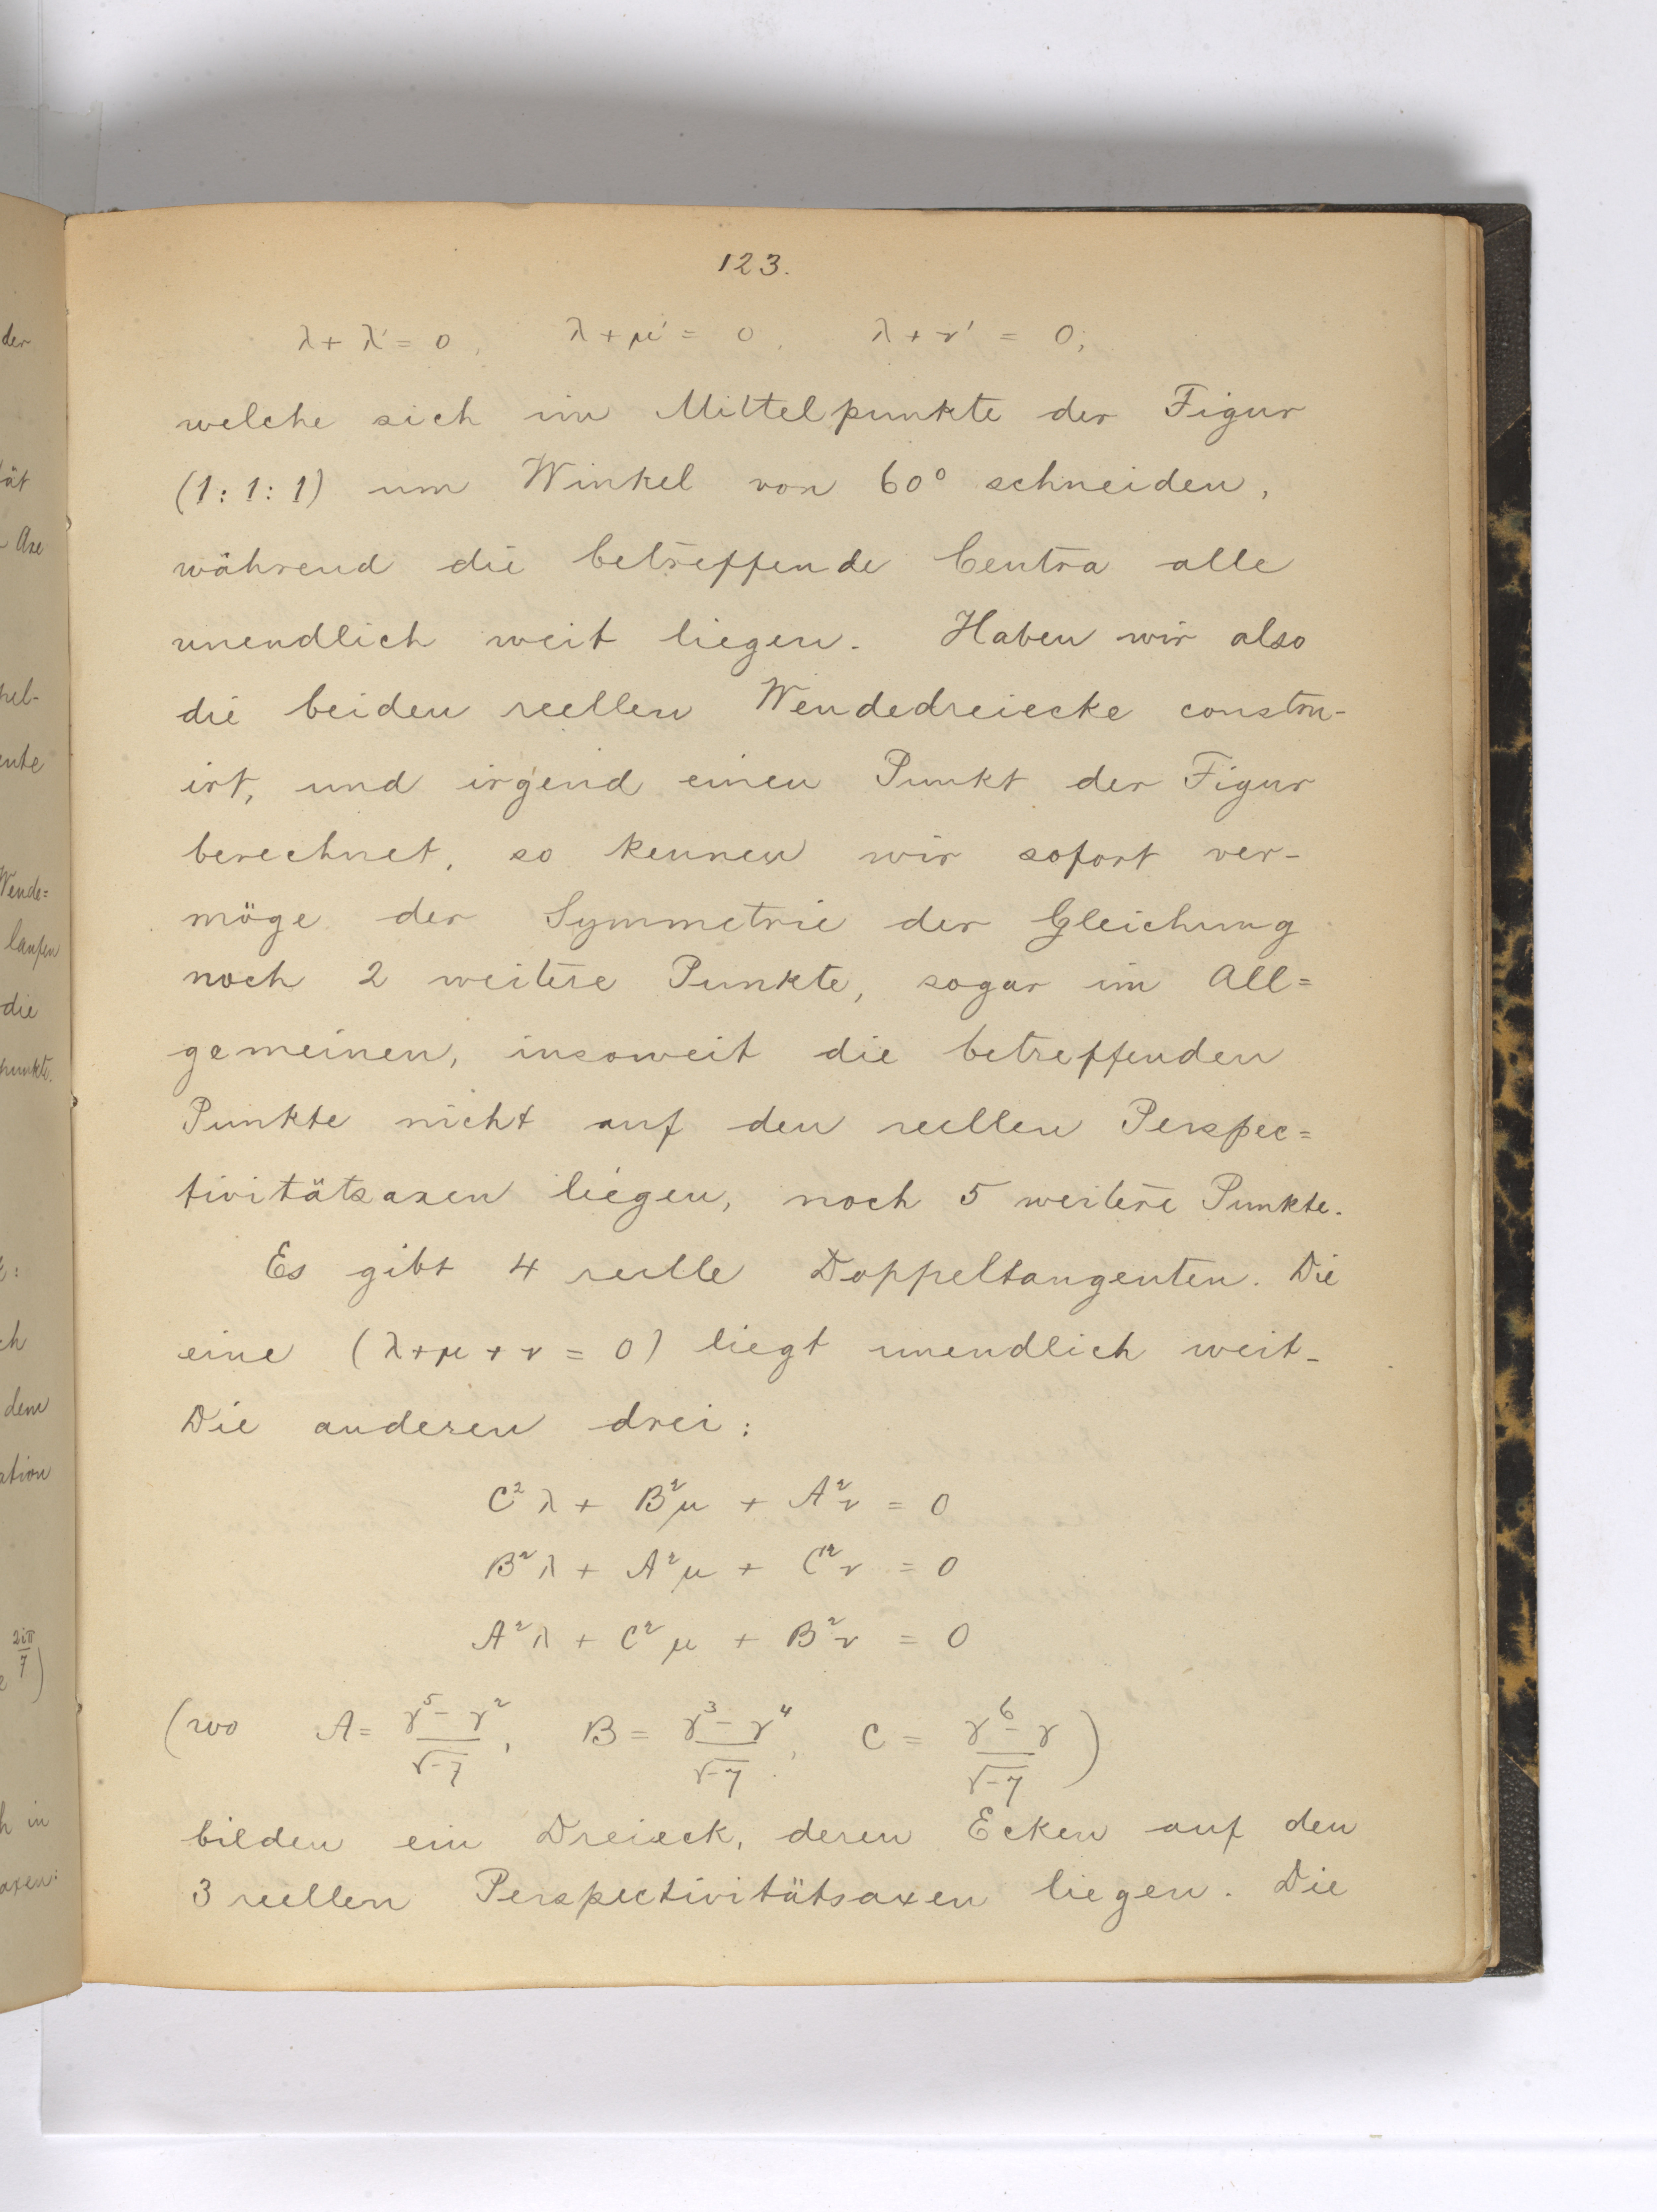 123.
λ + λ' = 0, λ + μ' = 0, λ + ν' = 0;
welche sich im Mittelpunkte der Figur
(1:1:1) um Winkel von 60° schneiden,
während die betreffende Centra alle
unendlich weit liegen. Haben wir also
die beiden reellen Wendedreiecke constru-
irt, und irgend einen Punkt der Figur
berechnet, so kennen wir sofort ver-
möge der Symmetrie der Gleichung
noch 2 weitere Punkte, sogar im All=
gemeinen, insoweit die betreffenden
Punkte nicht auf den reellen Perspec=
tivitätsaxen liegen, noch 5 weitere Punkte.
Es gibt 4 reelle Doppeltangenten. Die
eine (λ + μ + ν = 0) liegt unendlich weit.
Die anderen drei:
C²λ + B²μ + A²ν = 0
B²λ + A²μ + C²ν = 0
A²λ + C²μ + B²ν = 0
(wo A = (γ⁵ - γ²)/√-7, B = (γ³ - γ⁴)/√-7, C = (γ⁶ - γ)/√-7)
bilden ein Dreieck, deren Ecken auf den
3 reellen Perspectivitätsaxen liegen. Die
der
ät
Axe
Wende=
laufen
die
punkte.
dem
2iπ/7)
h in
axen: